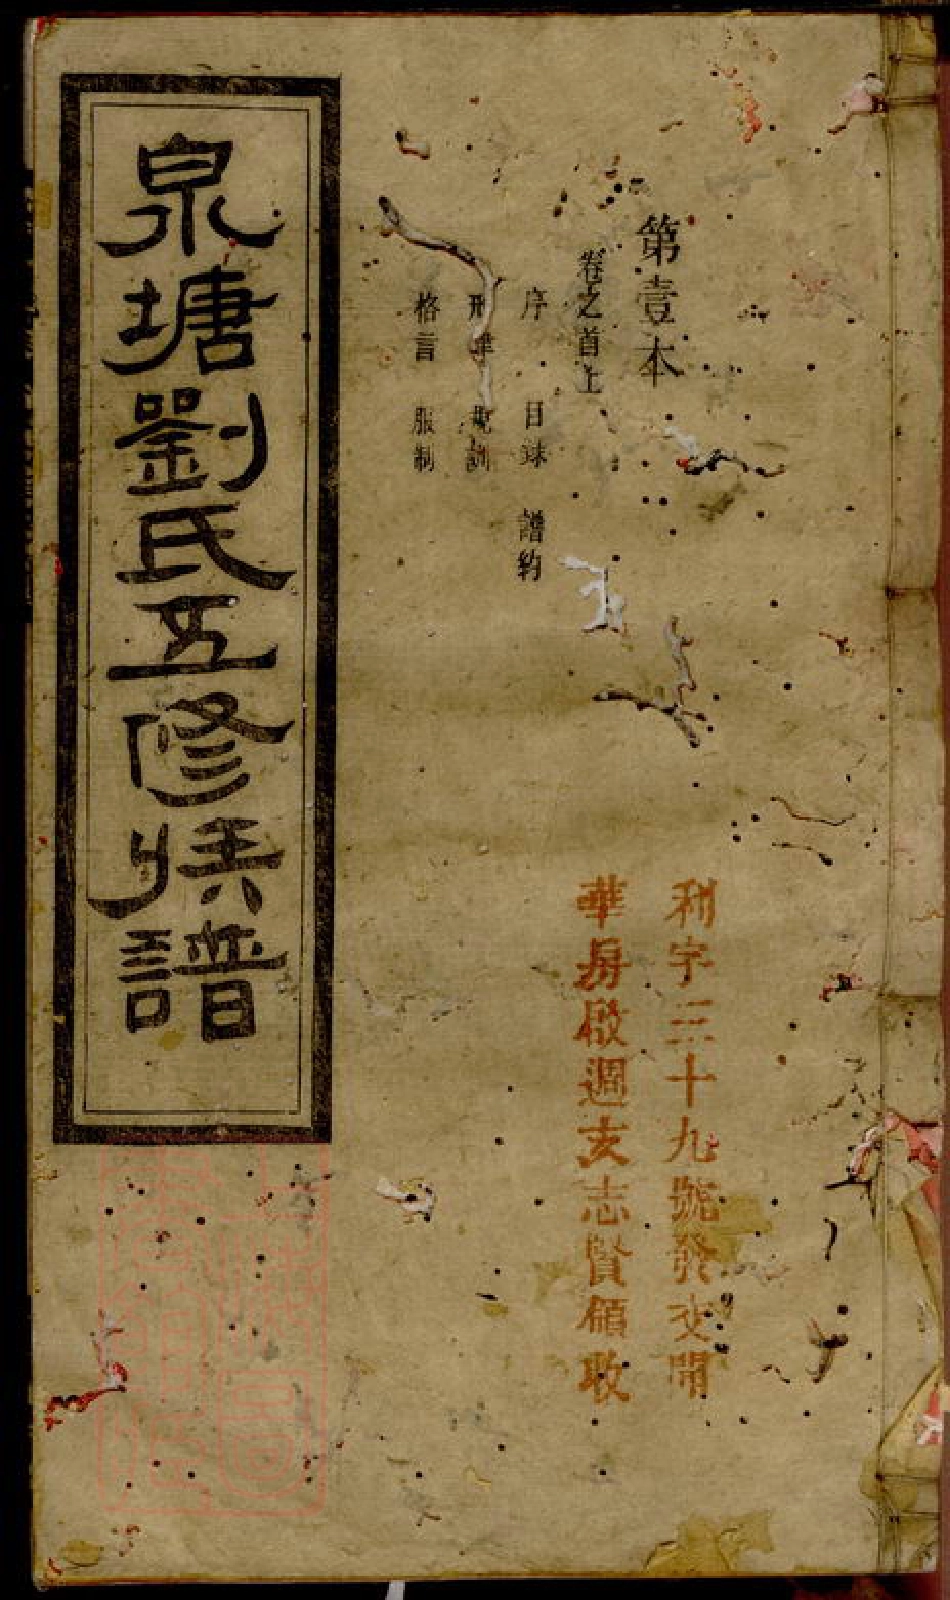 第壹本
卷之首上
序 目錄 譜約
刑律 規訓
格言 服制
泉塘劉氏五修族譜
利字三十九號發交開
華房啟週支志賢領收